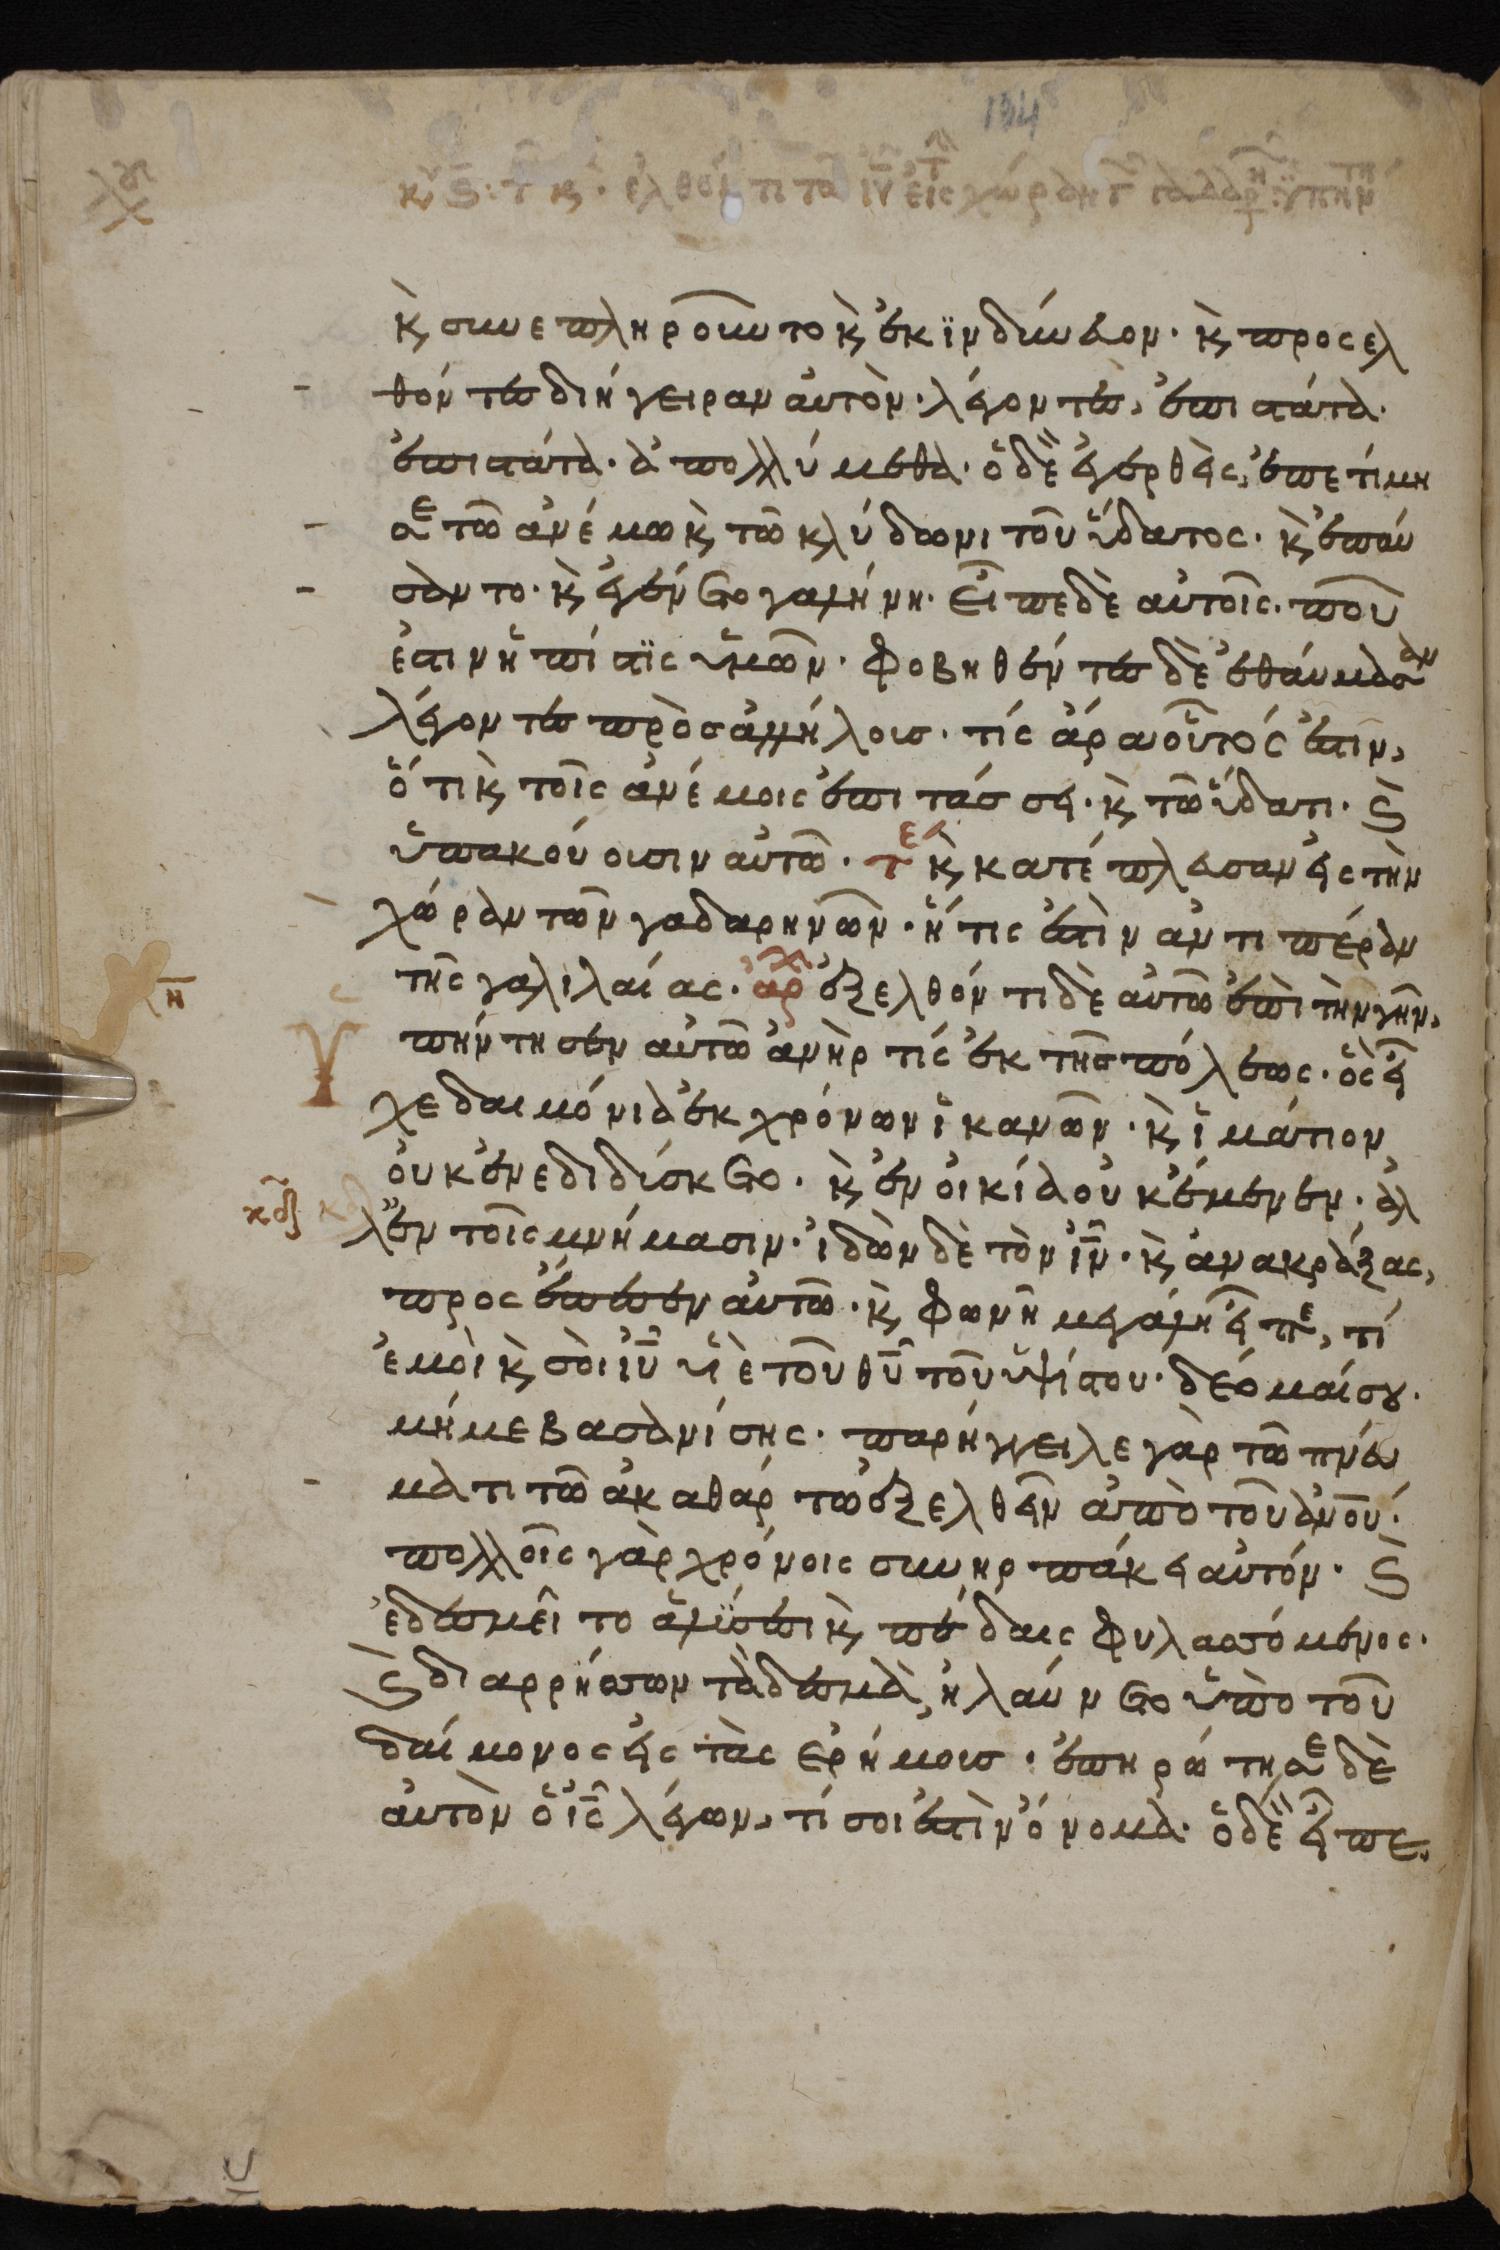 134
κυ ϛ: τ κ. ἐλθόντι τῶ ιυ εἰς χώραν τ γαδαρ: ὑπήντη
κ συνεπληροῦντο κ ἐκινδύνευον· κ προσελ
θόντες διήγειραν αὐτὸν· λέγοντες, ἐπιστάτα·
ἐπιστάτα· ἀπολλύμεθα· ὁ δὲ ἐγερθεὶς, ἐπετίμη
σε τῶ ἀνέμω κ τῶ κλύδωνι τοῦ ὕδατος· κ ἐπαύ
σαντο· κ ἐγένετο γαλήνη· εἶπε δὲ αὐτοῖς· ποῦ
ἐστιν ἡ πίστϊς ὑμῶν· φοβηθέντες δὲ ἐθαύμασαν
λέγοντες πρὸς ἀλλήλους· τίς ἄρα οὗτός ἐστιν,
ὅτι κ τοῖς ἀνέμοις ἐπιτάσσει· κ τῶ ὕδατι· ϗ
ὑπακούουσιν αὐτῶ· τε κ κατέπλευσαν εἰς τὴν
χώραν τῶν γαδαρηνῶν· ἥτις ἐστὶν ἀντιπέραν
τῆς γαλιλαίας· ἀρχ ἐξελθόντι δὲ αὐτῶ ἐπὶ τὴν γῆν,
η
πήντησεν αὐτῶ ἀνὴρ τίς ἐκ τῆς πόλεως· ὃς εἶ
χε δαιμόνια ἐκ χρόνων ἱκανῶν· κ ἱμάτιον
οὐκ ἐνεδιδύσκετο· κ ἐν οἰκία οὐκ ἔμενεν· ἀλ
λ' ἐν τοῖς μνήμασιν· ἰδὼν δὲ τὸν ιν· κ ἀνακράξας,
προσέπεσεν αὐτῶ· κ φωνῆ μεγάλη εἶπε, τί
ἐμοὶ κ σοὶ ιυ υἱὲ τοῦ θυ τοῦ ὑψίστου· δέομαί σου·
μή με βασανίσης· παρήγγειλε γὰρ τῶ πνεύ
ματι τῶ ἀκαθάρτω ἐξελθεῖν ἀπὸ τοῦ ανου·
πολλοῖς γὰρ χρόνοις συνηρπάκει αὐτόν· ϗ
ἐδεσμεῖτο ἁλύσεσι κ πέδαις φυλασσόμενος·
ϗ διαρρήσσων τὰ δεσμὰ, ἠλαύνετο ὑπὸ τοῦ
δαίμονος εἰς τὰς ἐρήμους· ἐπηρώτησε δὲ
αὐτὸν ὁ ις λέγων, τί σοι ἐστὶν ὄνομα· ὁ δὲ εἶπε,